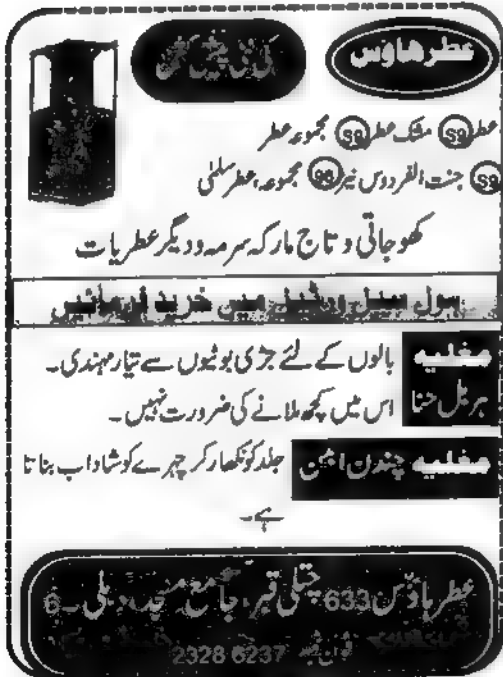 عطر ہاؤس
کی نئی پیش کش
عطر S9 مشک عطر S9 مجموعہ عطر
S9 جنت الفردوس نیز 96 مجموعہ، عطر سلمیٰ
کھوجاتی و تاج مارکہ سرمہ و دیگر عطریات
ہول سیل و رٹیل میں خرید فرمائیں
مغلیہ ہربل حنا
بالوں کے لئے جڑی بوٹیوں سے تیار مہندی۔
اس میں کچھ ملانے کی ضرورت نہیں۔
مغلیہ چندن ابٹن جلد کو نکھار کر چہرے کو شاداب بناتا
ہے۔
عطر ہاؤس 633 چتلی قبر، جامع مسجد، دہلی۔6
فون نمبر 2328 6237